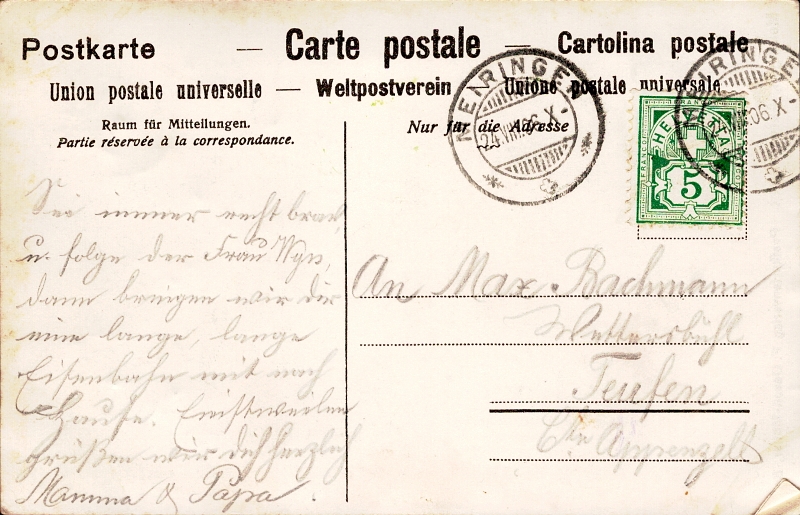 Postkarte — Carte postale — Cartolina postale
Union postale universelle — Weltpostverein — Unione postale universale
Raum für Mitteilungen.
Partie réservée à la correspondance.
Nur für die Adresse
MEIRINGEN
24.VIII.06.X-
MEIRINGEN
VIII.06.X-
FRANCO
HELVETIA
5
Sei immer recht brav,
u. folge der Frau
dann bringen wir dir
eine lange, lange
Eisenbahn mit nach
Hause. Einstweilen
grüßen wir dich herzlich
Mamma & Papa
An Max Bachmann
Wettersbühl
Teufen
Ctn Appenzell